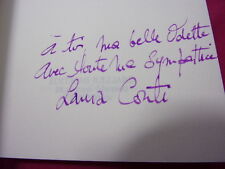 à toi, ma belle Odette
avec toute ma sympathie
Laura Conti